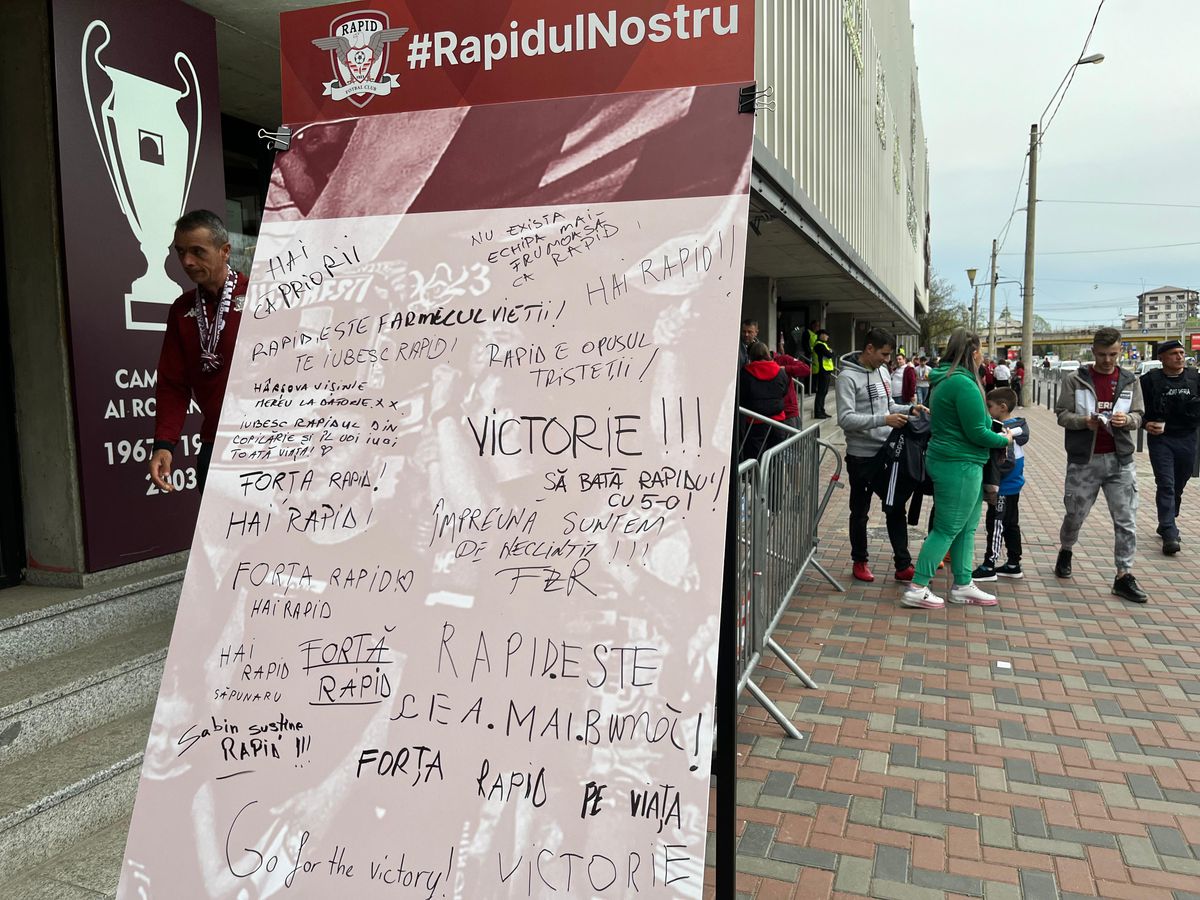 RAPID
FOTBAL CLUB
#RapidulNostru
CAM
AI RO
1967
19
2003
HAI
CAPRIORII
NU EXISTA
ECHIPA MAI
FRUMOASĂ
CA RAPID!
HAI RAPID!!
RAPID ESTE FARMECUL VIETII!
TE IUBESC RAPID!
RAPID E OPUSUL
TRISTEȚII!
HÂRȘOVA VIȘINIE
MEREU LA DATORIE. X X.
IUBESC RAPIDUL DIN
COPILĂRIE ȘI ÎL VOI IUBI
TOATĂ VIAȚA!
VICTORIE!!!
SĂ BATĂ RAPIDU'!
CU 5-0!
FORȚA RAPID!
HAI RAPID!
ÎMPREUNĂ SUNTEM
DE NECLINTIT!!!
FZR
FORȚA RAPID
HAI RAPID
HAI
RAPID
SĂPUNARU
FORȚĂ
RAPID
RAPID.ESTE
CEA.MAI.BUNĂ!
Sabin susține
RAPID!!!
FORȚA RAPID PE VIAȚA
Go for the victory!
VICTORIE